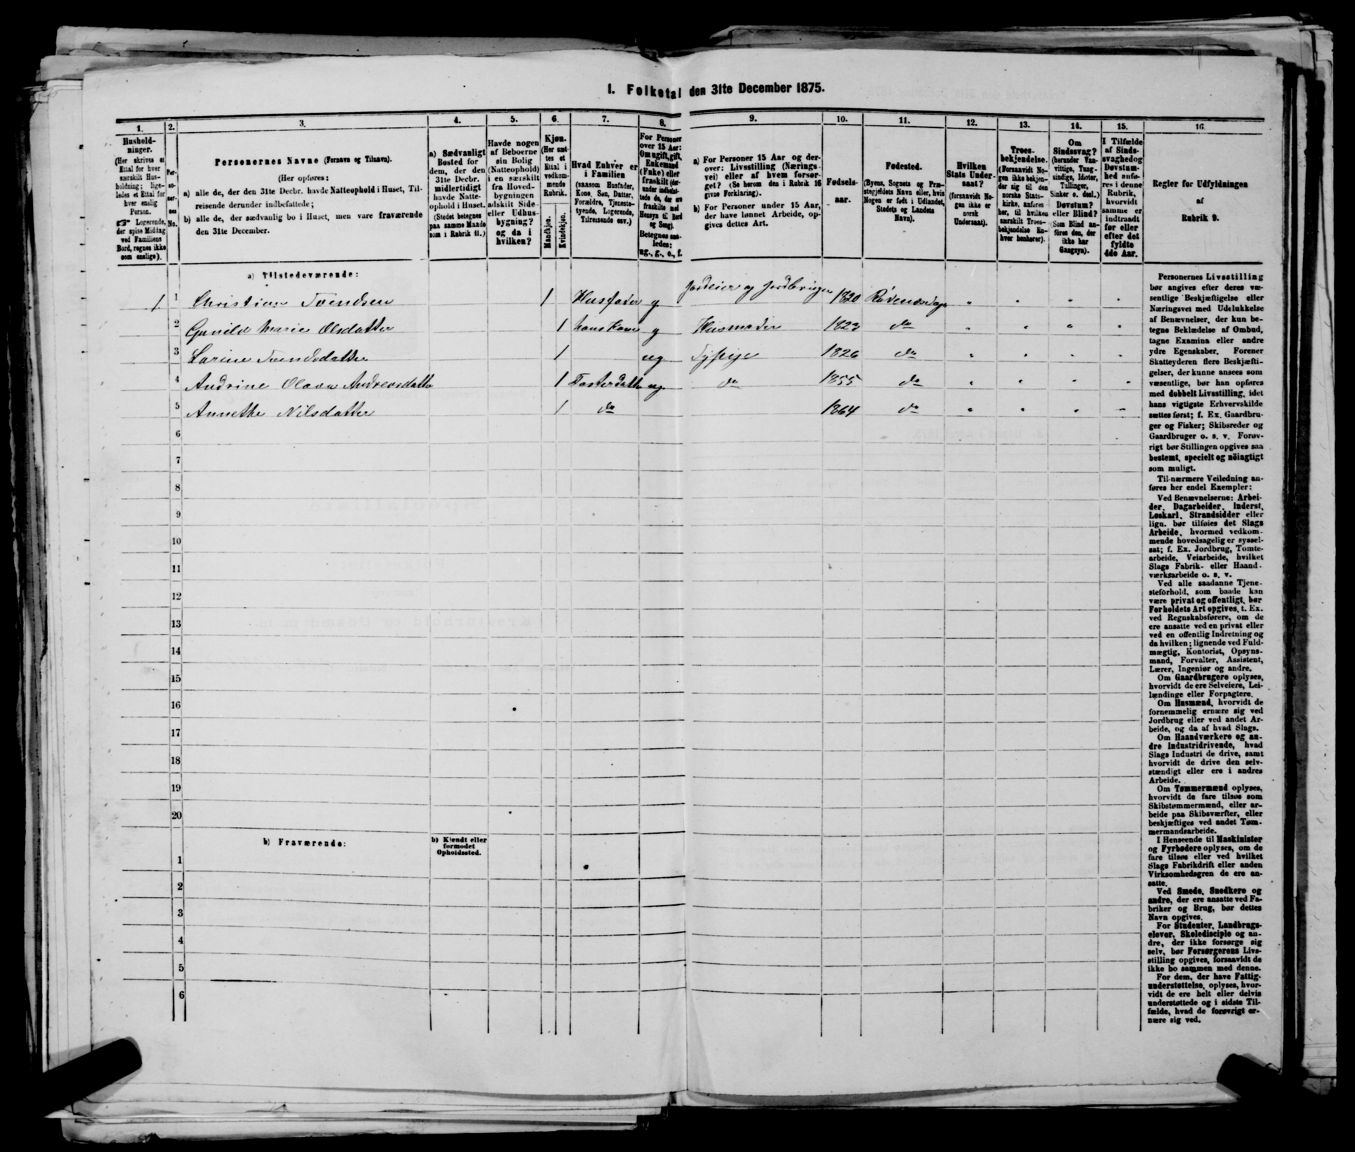 I. Folketal den 31te December 1875.
1. 2. 3. 4. 5. 6. 7. 8. 9. 10. 11. 12. 13. 14. 15. 16.
Hushold-
ninger.
(Her skrives et
Ettal for hver
særskilt Hus-
holdning; lige-
ledes et Ettal for
hver enslig
Person.
☞ Logerende,
der spise Middag
ved Familiens
Bord, regnes ikke
som enslige).
Per-
so-
ner-
nes
No.
Personernes Navne (Fornavn og Tilnavn).
(Her opføres:
a) alle de, der den 31te Decbr. havde Natteophold i Huset, Til-
reisende derunder indbefattede;
b) alle de, der sædvanlig bo i Huset, men vare fraværende
den 31te December.
a) Sædvanligt
Bosted for
dem, der den
31te Decbr.
midlertidigt
havde Natte-
ophold i Huset.
(Stedet betegnes
paa samme Maade
som i Rubrik 11.)
Havde nogen
af Beboerne
sin Bolig
(Natteophold)
i en særskilt
fra Hoved-
bygningen
adskilt Side-
eller Udhus-
bygning?
og da i
hvilken?
Kjøn.
(Her sæt-
tes et
Ettal i
vedkom-
mende
Rubrik.
Mandkjøn.
Kvindekjøn.
Hvad Enhver er
i Familien
(saasom Husfader,
Kone, Søn, Datter,
Forældre, Tjeneste-
tyende, Logerende,
Tilreisende osv.)
For Personer
over 15 Aar:
Om ugift, gift,
Enkemand
(Enke) eller
fraskilt (der-
under indbefat-
tede de, der ere
fraskilte med
Hensyn til Bord
og Seng).
Betegnes saa-
ledes:
ug., g., e., f.
a) For Personer 15 Aar og der-
over: Livsstilling (Nærings-
vei) eller af hvem forsør-
get? (Se herom den i Rubrik 16
givne Forklaring).
b) For Personer under 15 Aar,
der have lønnet Arbeide, op-
gives dettes Art.
Fødsels-
aar.
Fødested.
(Byens, Sognets og Præ-
stegjeldets Navn eller, hvis
Nogen er født i Udlandet,
Stedets og Landets
Navn).
Hvilken
Stats Under-
saat?
(forsaavidt No-
gen ikke er
norsk
Undersaat).
Troes-
bekjendelse.
(Forsaavidt No-
gen ikke bekjen-
der sig til den
norske Stats-
kirke, anføres
her, til hvilken
særskilt Troes-
bekjendelse En-
hver henhører).
Om
Sindssvag?
(herunder Van-
vittige, Tung-
sindige, Idioter,
Tullinger,
Sinker o. desl.)
Døvstum?
eller Blind?
(Som Blind an-
føres den, der
ikke har
Gangsyn).
I Tilfælde
af Sinds-
svaghed og
Døvstum-
hed anfø-
res i denne
Rubrik,
hvorvidt
samme er
indtraadt
før eller
efter det
fyldte
4de Aar.
Regler for Udfyldningen
af
Rubrik 9.
a) Tilstedeværende:
1 1 Christian Svendsen 1 Husfader g Jordeier og Jordbruger 1820 Rødenes
2 Gunild Marie Olsdatter 1 hans Kone g Husmoder 1822 do
3 Karine Svendsdatter 1 ug Tjpige 1826 do
4 Andrine Olava Andreasdatter 1 Fosterdatter ug do 1855 do
5 Annette Nilsdatter 1 do 1864 do
6
7
8
9
10
11
12
13
14
15
16
17
18
19
20
b) Fraværende: b) Kjendt eller
formodet
Opholdssted.
1
2
3
4
5
6
Personernes Livsstilling
bør angives efter deres væ-
sentlige Beskjæftigelse eller
Næringsvei med Udelukkelse
af Benævnelser, der kun be-
tegne Beklædelse af Ombud,
tagne Examina eller andre
ydre Egenskaber. Forener
Skatteyderen flere Beskjæfti-
gelser, der kunne ansees som
væsentlige, bør han opføres
med dobbelt Livsstilling, idet
hans vigtigste Erhvervskilde
sættes først; f. Ex. Gaardbru-
ger og Fisker; Skibsreder og
Gaardbruger o. s. v. Forøv-
rigt bør Stillingen opgives saa
bestemt, specielt og nøiagtigt
som muligt.
Til nærmere Veiledning an-
føres her endel Exempler:
Ved Benævnelserne: Arbei-
der, Dagarbeider, Inderst,
Løskarl, Strandsidder eller
lign. bør tilføies det Slags
Arbeide, hvormed vedkom-
mende hovedsagelig er syssel-
sat; f. Ex. Jordbrug, Tomte-
arbeide, Veiarbeide, hvilket
Slags Fabrik- eller Haand-
værksarbeide o. s. v.
Ved alle saadanne Tjene-
steforhold, som baade kan
være privat og offentligt, bør
Forholdets Art opgives, t. Ex.
ved Regnskabsførere, om de
ere ansatte ved en privat eller
ved en offentlig Indretning og
da hvilken; lignende ved Fuld-
mægtig, Kontorist, Opsyns-
mand, Forvalter, Assistent,
Lærer, Ingeniør og andre.
Om Gaardbrugere oplyses,
hvorvidt de ere Selveiere, Lei-
lændinge eller Forpagtere.
Om Husmænd, hvorvidt de
fornemmelig ernære sig ved
Jordbrug eller ved andet Ar-
beide, og da af hvad Slags.
Om Haandværkere og an-
dre Industridrivende, hvad
Slags Industri de drive, samt
hvorvidt de drive den selv-
stændigt eller ere i andres
Arbeide.
Om Tømmermænd oplyses,
hvorvidt de fare tilsøs som
Skibstømmermænd, eller ar-
beide paa Skibsværfter, eller
beskjæftiges ved andet Tøm-
mermandsarbeide.
I Henseende til Maskinister
og Fyrbødere oplyses, om de
fare tilsøs eller ved hvilket
Slags Fabrikdrift eller anden
Virksomhedsgren de ere an-
satte.
Ved Smede, Snedkere og
andre, der ere ansatte ved Fa-
briker og Brug, bør dettes
Navn opgives.
For Studenter, Landbrugs-
elever, Skoledisciple og an-
dre, der ikke forsørge sig
selv, bør Forsørgerens Livs-
stilling opgives, forsaavidt de
ikke bo sammen med denne.
For dem, der have Fattig-
understøttelse, oplyses, hvor-
vidt de ere helt eller delvis
understøttede og i sidste Til-
fælde, hvad de forøvrigt er-
nære sig ved.